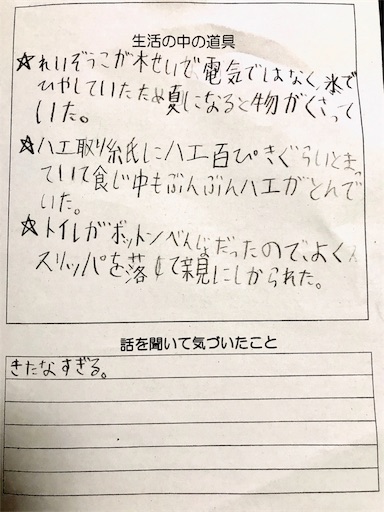 生活の中の道具
☆れいぞうこが木せいで電気ではなく氷で
ひやしていたため夏になると物がくさって
いた。
☆ハエ取り紙にハエ百ぴきぐらいとまっ
ていて食じ中もぶんぶんハエがとんで
いた。
☆トイレがボットンべんじょだったので、よく
スリッパを落して親にしかられた。
話を聞いて気づいたこと
きたなすぎる。